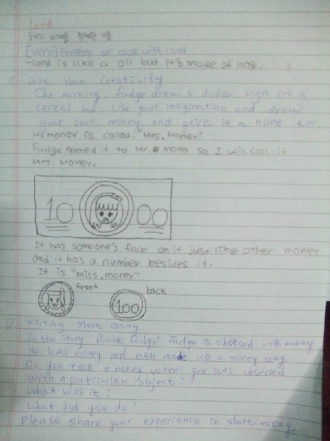 Lard
[verb] Prepare or cook with lard
-lard is like a oil but it's made of hog.
C. Use Your Creativity
One morning, Fudge drew a dollar sign on a
cereal box. Use your imagination and draw
Your own money and gave it a name too.
My money is called "Mrs. Money"
Fudge named it to Mr. money so I will call it
Mrs. Money.
10 00
It has someone's face on it just like other money
and it has a number besides it.
It is "miss. money"
front back
100
D. Writing short essay
In the story Double Fudge, Fudge is obsessed with money
He loves money and even made up a money song.
Do you recall a memory when you were obsessed
with a particular objects?
What was it?
What did you do?
Please share your experience in short essay